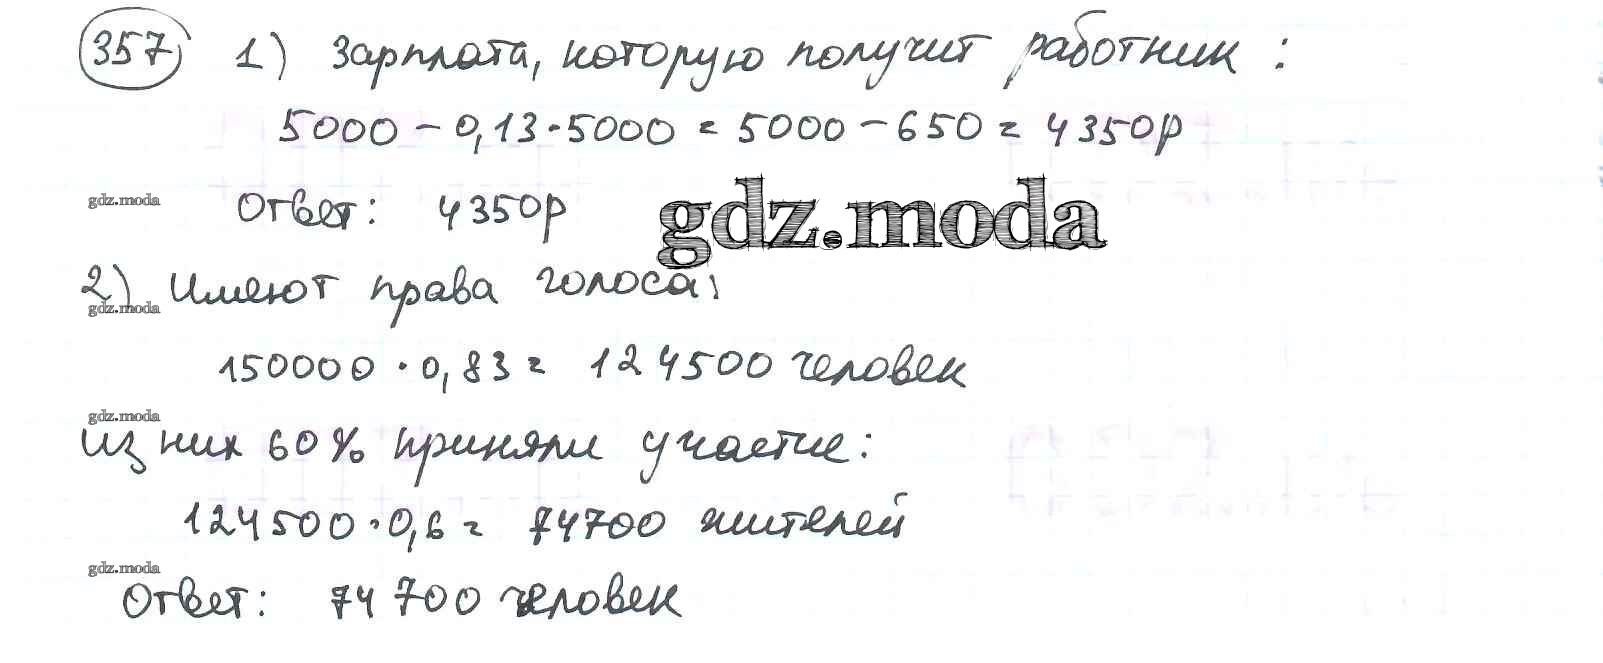 357 1) Зарплата, которую получит работник :
5000 - 0,13·5000 = 5000 - 650 = 4350р
gdz.moda Ответ: 4350р gdz.moda
2) Имеют права голоса:
gdz.moda
150000 · 0,83 = 124500 человек
gdz.moda
из них 60% приняли участие:
124500·0,6 = 74700 жителей
gdz.moda
Ответ: 74 700 человек